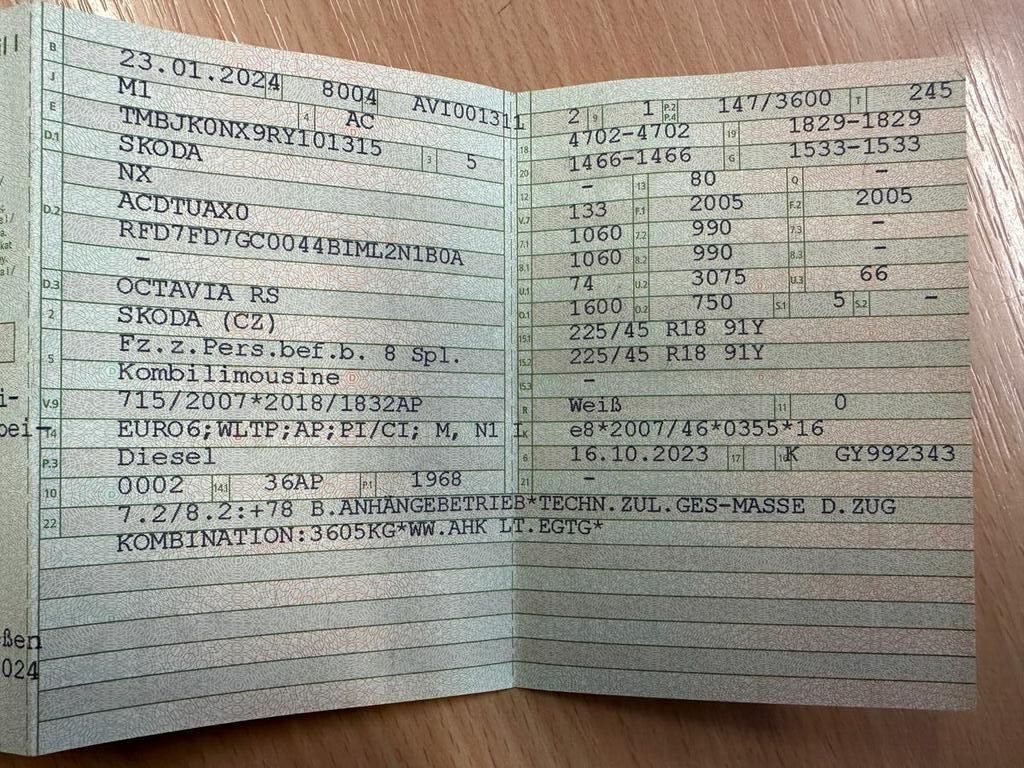 B 23.01.2024 8004 AVI001311
J M1 4 AC
E TMBJK0NX9RY101315 3 5
D.1 SKODA
NX
D.2 ACDTUAX0
RFD7FD7GC0044BIML2N1B0A
-
D.3 OCTAVIA RS
2 SKODA (CZ)
5 Fz.z.Pers.bef.b. 8 Spl.
Kombilimousine
V.9 715/2007*2018/1832AP
14 EURO6;WLTP;AP;PI/CI; M, N1 I
P.3 Diesel
10 0002 14.1 36AP P.1 1968
22 7.2/8.2:+78 B.ANHÄNGEBETRIEB*TECHN.ZUL.GES-MASSE D.ZUG
KOMBINATION:3605KG*WW.AHK LT.EGTG*
2 9 1 P.2 P.4 147/3600 T 245
18 4702-4702 19 1829-1829
20 1466-1466 G 1533-1533
12 - 13 80 Q -
V.7 133 F.1 2005 F.2 2005
7.1 1060 7.2 990 7.3 -
8.1 1060 8.2 990 8.3 -
U.1 74 U.2 3075 U.3 66
O.1 1600 O.2 750 S.1 5 S.2 -
15.1 225/45 R18 91Y
15.2 225/45 R18 91Y
15.3 -
R Weiß 11 0
K e8*2007/46*0355*16
6 16.10.2023 17 K 16 GY992343
21 -
i-
bei-
ßen
024